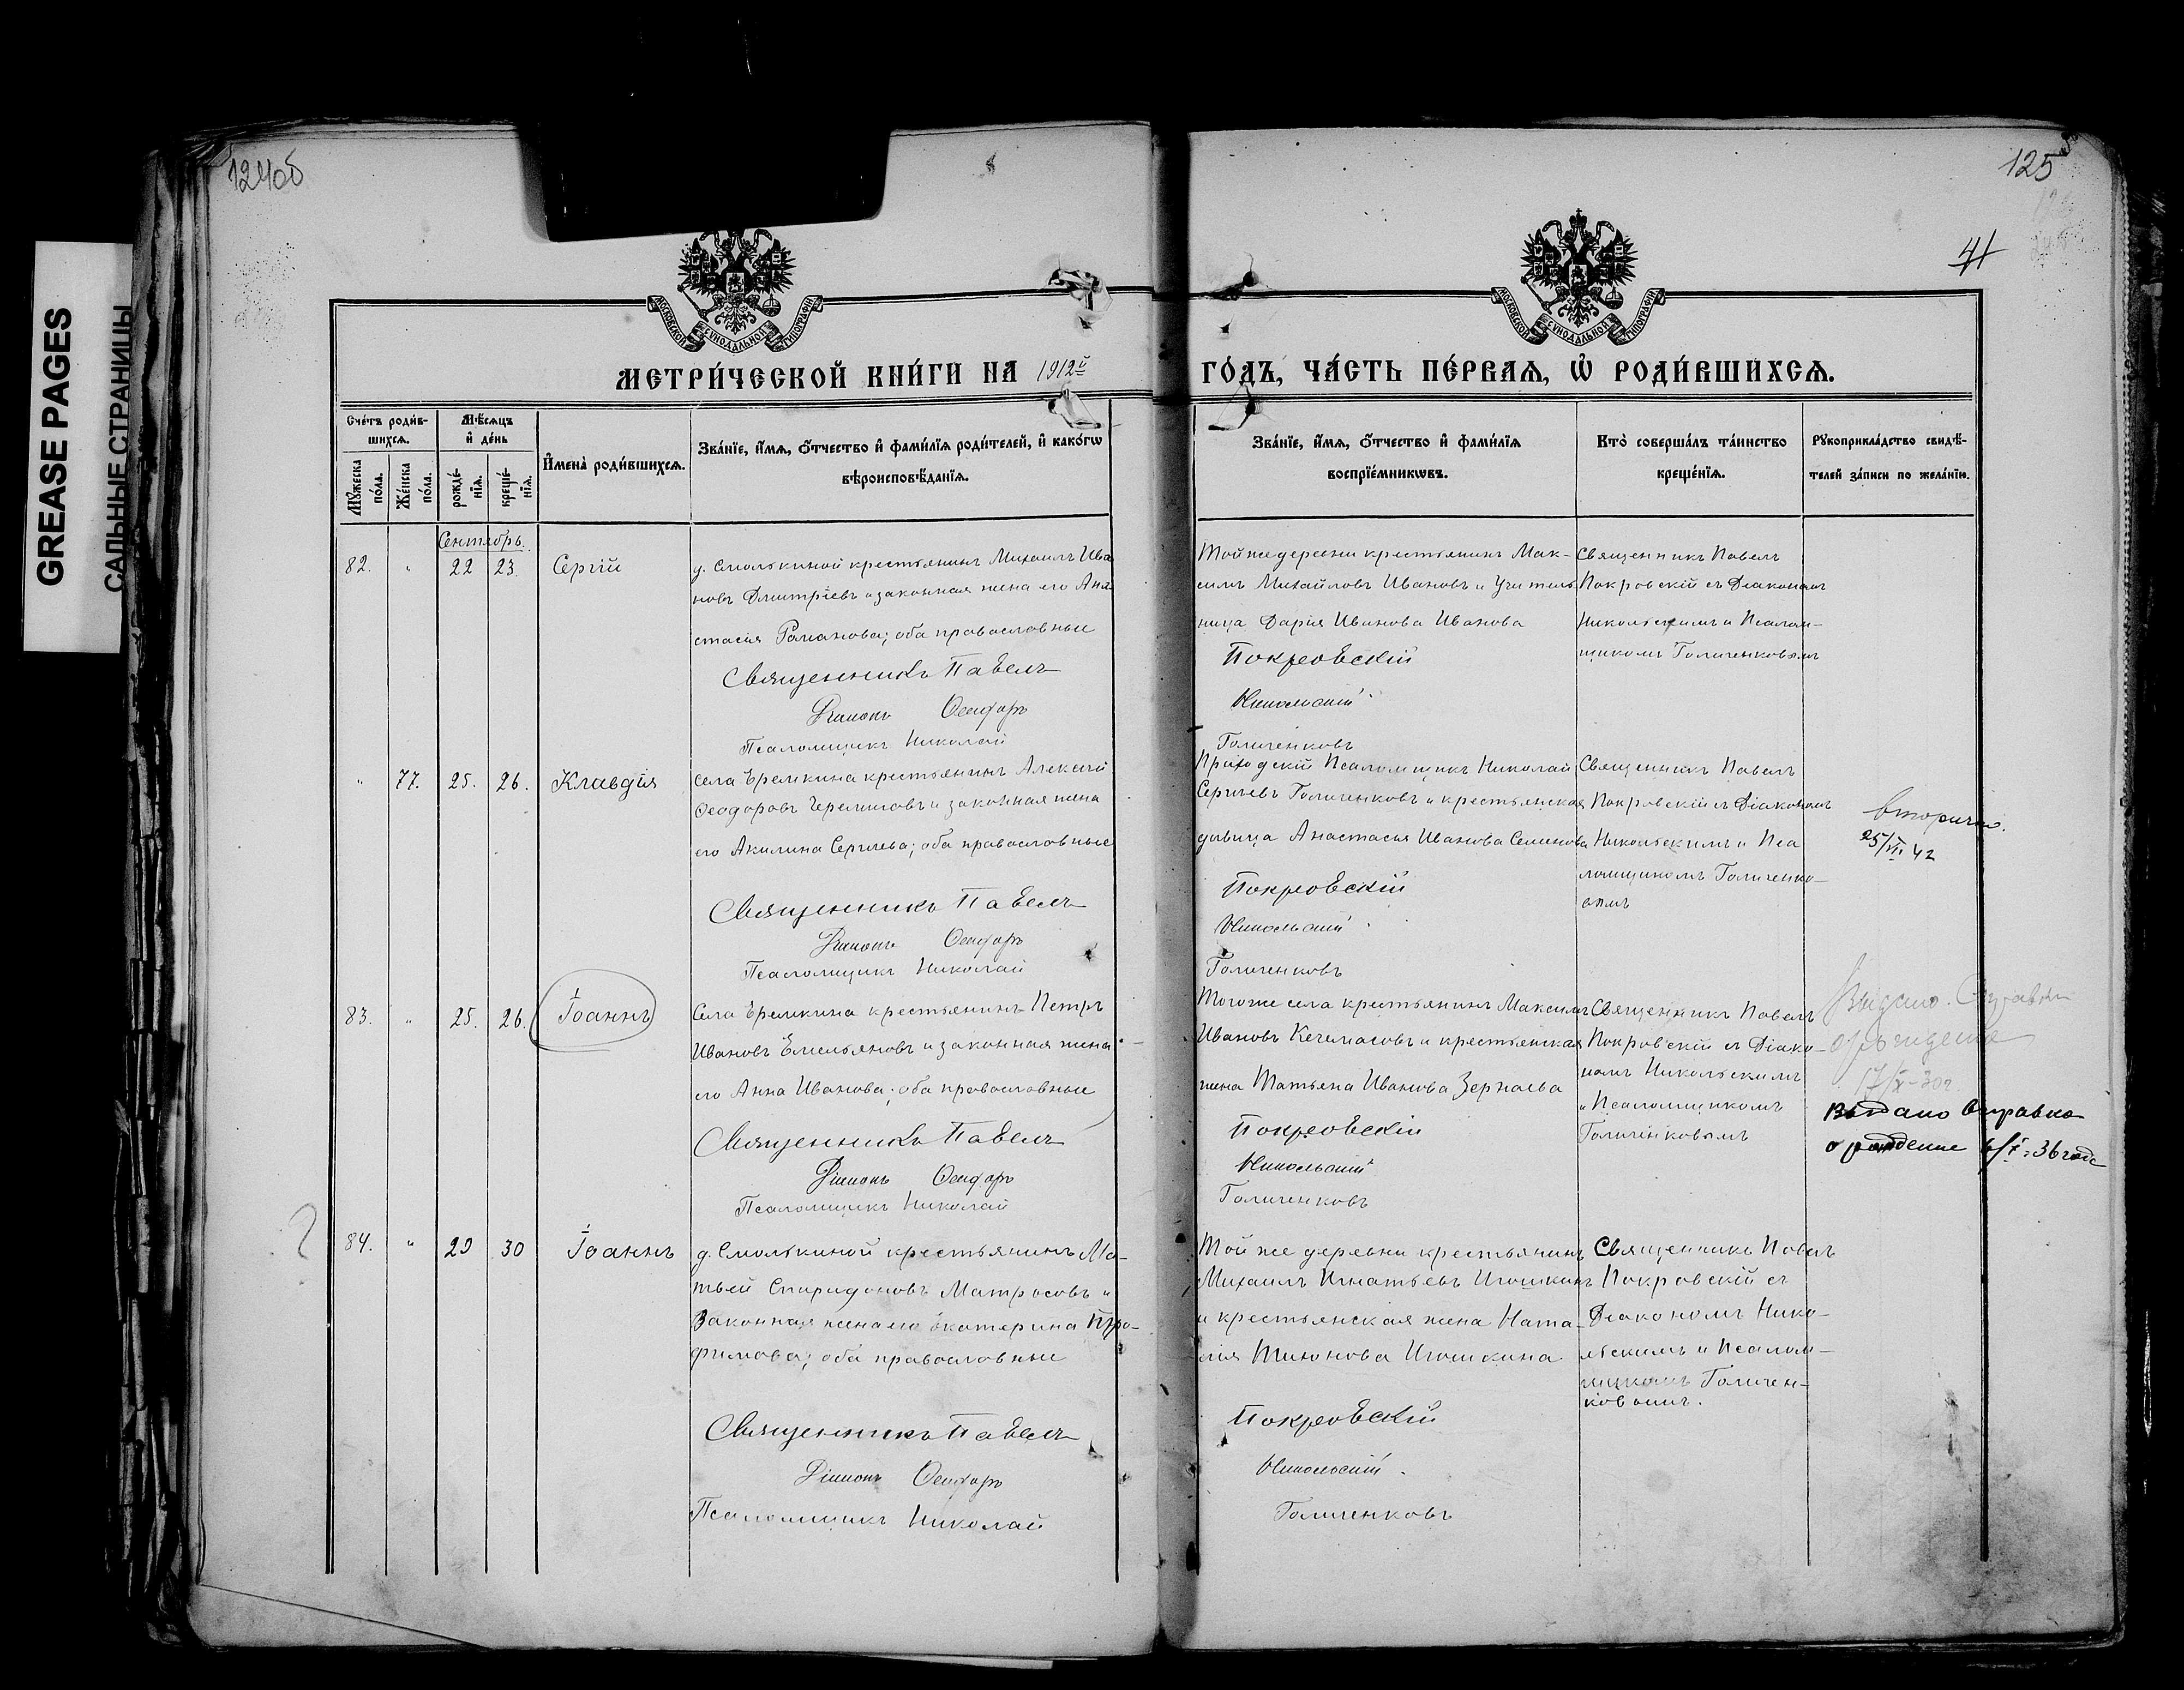 GREASE PAGES
САЛЬНЫЕ СТРАНИЦЫ
124об
125
41
МОСКОВСКОЙ СУНОДАЛЬНОЙ ТИПОГРАФІИ
МОСКОВСКОЙ СУНОДАЛЬНОЙ ТИПОГРАФІИ
МЕТРИ́ЧЕСКОЙ КНИ́ГИ НА 1912й ГО́ДЪ, ЧА́СТЬ ПЕ́РВАЯ, Ѡ҆ РОДИ́ВШИХСѦ.
Сче́тъ роди́в-
шихсѧ.
Мꙋ́жеска по́ла.
Же́нска по́ла.
Мѣ́сѧцъ
и҆ де́нь
рожде́-
нїѧ.
креще́-
нїѧ.
И҆мена̀ роди́вшихсѧ.
Зва́нїе, и҆́мѧ, ѻ҆́тчество и҆ фами́лїѧ роди́телей, и҆ како́гѡ
вѣроисповѣ́данїѧ.
Зва́нїе, и҆́мѧ, ѻ҆́тчество и҆ фами́лїѧ
воспрїе́мникѡвъ.
Кто̀ соверша́лъ та́инство
креще́нїѧ.
Рꙋкоприкла́дство свидѣ́-
телей за́писи по жела́нїю.
Сентябрь.
82. " 22 23. Сергій
д. Смолькиной крестьянинъ Михаилъ Ива
новъ Дмитріевъ и законная жена его Ана
стасія Романова; оба православные
Священникъ Павелъ
Діаконъ Ѳеодоръ
Псаломщикъ Николай
Той же деревни крестьянинъ Мак-
симъ Михайловъ Ивановъ и Учитель
ница Дарія Иванова Иванова
Покровскій
Никольскій
Голиченковъ
Священникъ Павелъ
Покровскій съ Діакономъ
Никольскимъ и Псалом-
щикомъ Голиченковымъ
" 77. 25. 26. Клавдія
Села Еремкина крестьянинъ Алексѣй
Ѳеодоровъ и законная жена
его Акилина Сергѣева; оба православные
Священникъ Павелъ
Діаконъ Ѳеодоръ
Псаломщикъ Николай
Приходскій Псаломщикъ Николай
Сергѣевъ Голиченковъ и крестьянская
дѣвица Анастасія Иванова Семенова
Покровскій
Никольскій
Голиченковъ
Священникъ Павелъ
Покровскій съ Діакономъ
Никольскимъ и Пса
ломщикомъ Голиченко-
вымъ
вторично.
25/VII 42
83. " 25. 26. Іоаннъ
Села Еремкина крестьянинъ Петръ
Ивановъ Емельяновъ и законная жена
его Анна Иванова; оба православные
Священникъ Павелъ
Діаконъ Ѳеодоръ
Псаломщикъ Николай
Того же села крестьянинъ Максимъ
Ивановъ и крестьянская
жена Татьяна Иванова Зернаева
Покровскій
Никольскій
Голиченковъ
Священникъ Павелъ
Покровскій съ Діако-
номъ Никольскимъ
и Псаломщикомъ
Голиченковымъ
Выдано Справка
о рождение
17/X-30г.
Выдано Справка
о рождение 6/X-36 года
84. " 29 30 Іоаннъ
д. Смолькиной крестьянинъ Ма-
твей Спиридоновъ Матросовъ и
законная жена его Екатерина Тро-
фимова; оба православные
Священникъ Павелъ
Діаконъ Ѳеодоръ
Псаломщикъ Николай
Той же деревни крестьянинъ
Михаилъ Игнатьевъ Игошкинъ
и крестьянская жена Ната-
лія Тихонова Игошкина
Покровскій
Никольскій
Голиченковъ
Священникъ Павелъ
Покровскій съ
Діакономъ Нико-
льскимъ и Псалом-
щикомъ Голичен-
ковымъ.